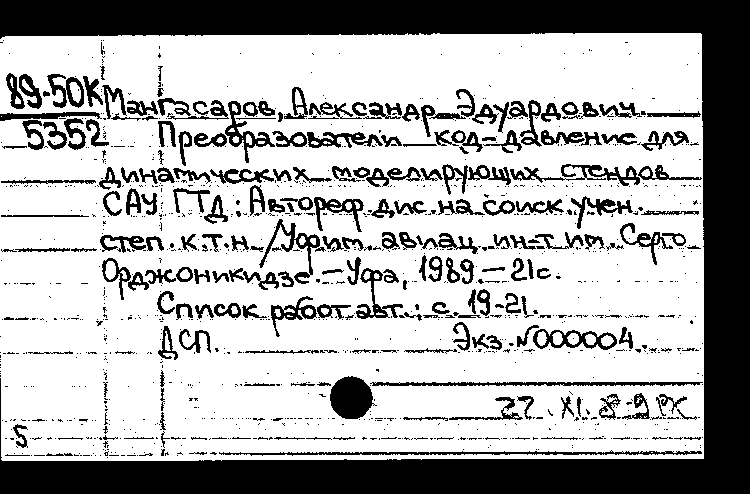 89-50К Мангасаров, Александр Эдуардович.
5352 Преобразователи код-давление для
динамических моделирующих стендов
САУ ГТД: Автореф. дис. на соиск. учен.
степ. к.т.н. /Уфим. авиац. ин-т им. Серго
Орджоникидзе.-Уфа, 1989.-21с.
Список работ авт.: с. 19-21.
ДСП. Экз. №000004.
27.XI.89 РК
5